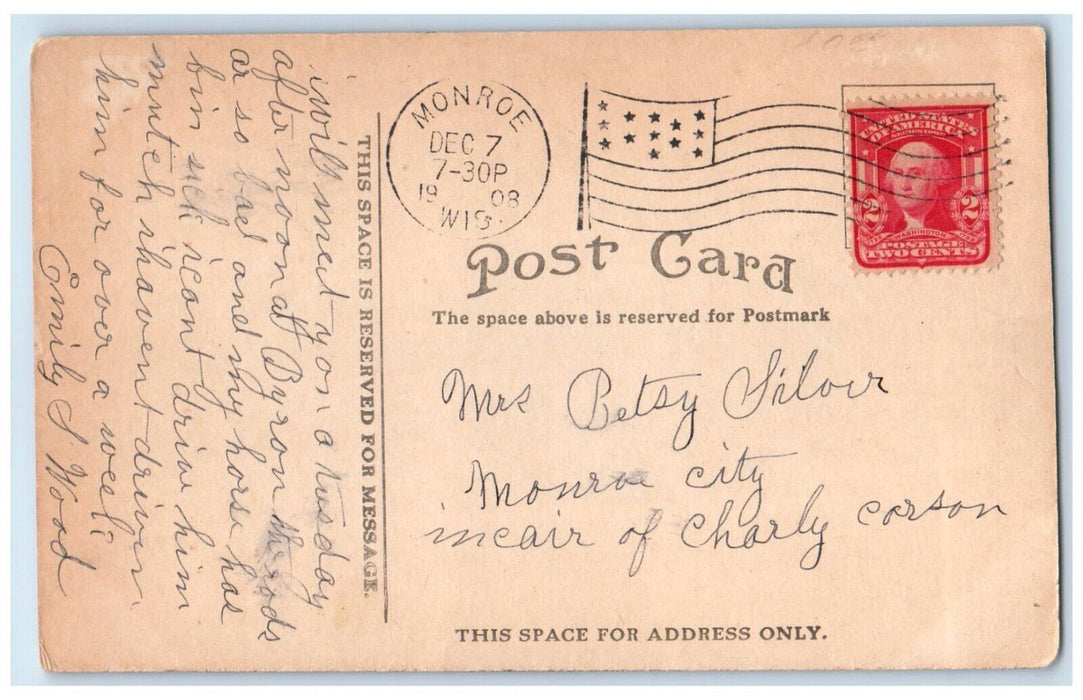 MONROE
DEC 7
7-30P
1908
WIS.
UNITED STATES
OF AMERICA
2 2
WASHINGTON
POSTAGE
TWO CENTS
Post Card
The space above is reserved for Postmark
THIS SPACE IS RESERVED FOR MESSAGE.
i will meet you a tusday
after noon at Byron the rods
ar so bad and my horse has
bin sick icant drive him
mutch ihavent driven
him for over a week
Emily S Wood
Mrs Betsy Silver
Monroe city
incair of Charly corson
THIS SPACE FOR ADDRESS ONLY.